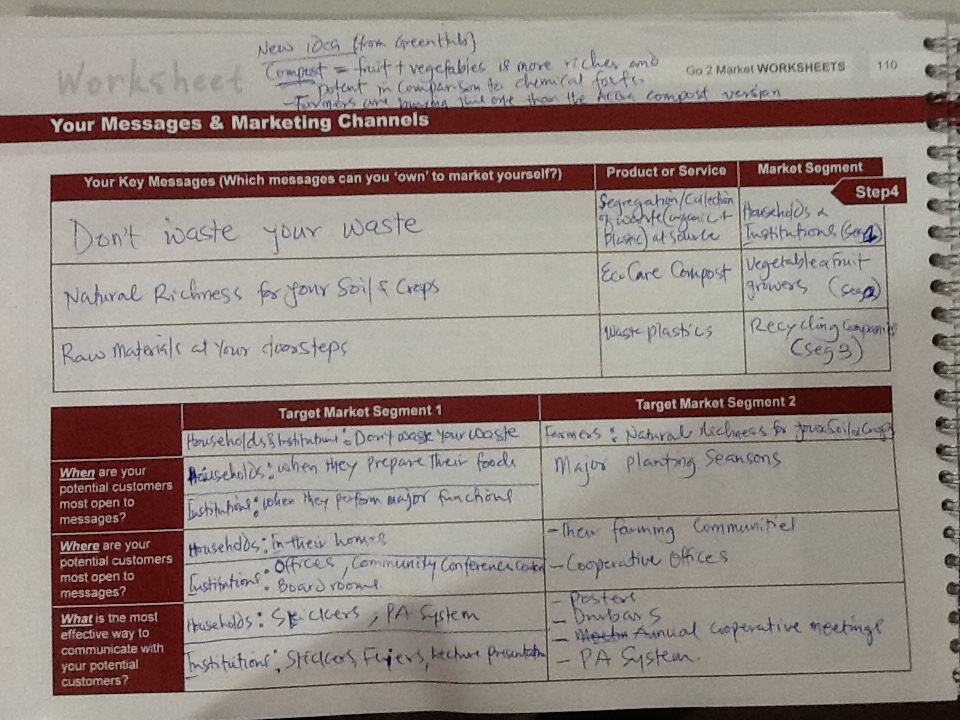 New idea (from GreenHub)
Compost = fruit + vegefables is more richer and
potent in comparison to chemical
- Farmers are buying this one than the compost version
Worksheet
Go 2 Market WORKSHEETS 110
Your Messages & Marketing Channels
Your Key Messages (Which messages can you 'own' to market yourself?)
Product or Service
Market Segment
Step4
Don't waste your waste
Segregation/Collection
of waste (organic +
Plastic) at source
Households &
Institutions (seg1)
Natural Richness for your Soil & Crops
EcoCare Compost
Vegetable & fruit
growers (seg2)
Raw Materials at Your doorsteps
Waste plastics
Recycling Companies
(seg 3)
Target Market Segment 1
Target Market Segment 2
Households & Institutions: Don't waste your waste
Farmers: Natural Richness for your Soil & Crops
When are your
potential customers
most open to
messages?
Households: when they prepare their foods
Institutions: when they perform major functions
Major Planting Seansons
Where are your
potential customers
most open to
messages?
Households: In their homes
Institutions: Offices, Community Conference Center
Boardrooms
- Their farming Communities
- Cooperative Offices
What is the most
effective way to
communicate with
your potential
customers?
Households: Stickers, PA System
Institutions: Stickers, Fliers, Lecture Presentation
- Posters
- Durbars
- Annual Cooperative meetings
- PA System